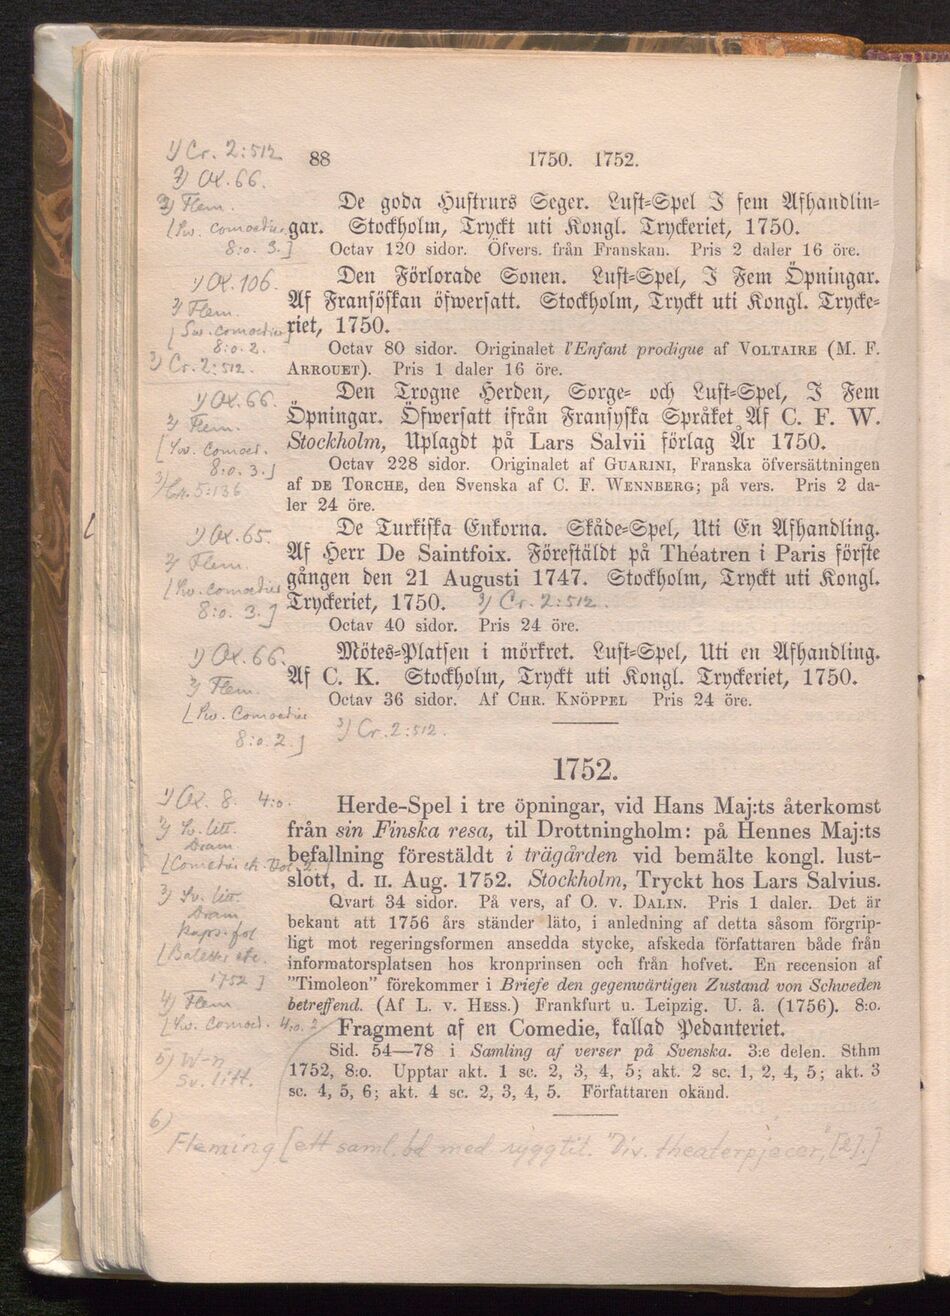 88 1750. 1752.
1) Cr. 2:512
2) Ol. 66.
3) Flem.
[Sv. comoedier
8:o. 3.]
De goda Hustrurs Seger. Lust-Spel I fem Afhandlin-
gar. Stockholm, Tryckt uti Kongl. Tryckeriet, 1750.
Octav 120 sidor. Öfvers. från Franskan. Pris 2 daler 16 öre.
1) Ol. 106.
2) Flem.
[Sw. comoedier
8:o. 2.
3) Cr. 2:512.
Den Förlorade Sonen. Lust-Spel, I Fem Öpningar.
Af Fransöskan öfwersatt. Stockholm, Tryckt uti Kongl. Trycke-
riet, 1750.
Octav 80 sidor. Originalet l'Enfant prodigue af VOLTAIRE (M. F.
ARROUET). Pris 1 daler 16 öre.
1) Ol. 66.
2) Flem.
[Sw. Comoed.
8:o. 3.]
3) Cr. 5:136
Den Trogne Herden, Sorge- och Lust-Spel, I Fem
Öpningar. Öfwersatt ifrån Fransyska Språket Af C. F. W.
Stockholm, Uplagdt på Lars Salvii förlag År 1750.
Octav 228 sidor. Originalet af GUARINI, Franska öfversättningen
af DE TORCHE, den Svenska af C. F. WENNBERG; på vers. Pris 2 da-
ler 24 öre.
1) Ol. 65.
2) Flem.
[Sw. comoedier
8:o. 3.]
De Turkiska Enkorna. Skåde-Spel, Uti En Afhandling.
Af Herr De Saintfoix. Föreställdt på Théatren i Paris förste
gången den 21 Augusti 1747. Stockholm, Tryckt uti Kongl.
Tryckeriet, 1750. 3) Cr. 2:512.
Octav 40 sidor. Pris 24 öre.
1) Ol. 66.
2) Flem.
[Sw. Comoedier
8:o. 2.]
Mötes-Platsen i mörkret. Lust-Spel, Uti en Afhandling.
Af C. K. Stockholm, Tryckt uti Kongl. Tryckeriet, 1750.
Octav 36 sidor. Af CHR. KNÖPPEL Pris 24 öre.
3) Cr. 2:512.
1752.
1) Ol. 8. 4:o.
2) Sv. litt.
Dram.
3) Sv. litt.
Dram.
kaps. fol
[Baletter etc.
1752]
4) Flem
[Sw. Comoed. 4:o. 2
5) W-n
Sv. litt.
Herde-Spel i tre öpningar, vid Hans Maj:ts återkomst
från sin Finska resa, til Drottningholm: på Hennes Maj:ts
befallning förestäldt i trägården vid bemälte kongl. lust-
slott, d. II. Aug. 1752. Stockholm, Tryckt hos Lars Salvius.
Qvart 34 sidor. På vers, af O. v. DALIN. Pris 1 daler. Det är
bekant att 1756 års ständer läto, i anledning af detta såsom förgrip-
ligt mot regeringsformen ansedda stycke, afskeda författaren både från
informatorsplatsen hos kronprinsen och från hofvet. En recension af
"Timoleon" förekommer i Briefe den gegenwärtigen Zustand von Schweden
betreffend. (Af L. v. HESS.) Frankfurt u. Leipzig. U. å. (1756). 8:o.
Fragment af en Comedie, kallad Pedanteriet.
Sid. 54—78 i Samling af verser på Svenska. 3:e delen. Sthm
1752, 8:o. Upptar akt. 1 sc. 2, 3, 4, 5; akt. 2 sc. 1, 2, 4, 5; akt. 3
sc. 4, 5, 6; akt. 4 sc. 2, 3, 4, 5. Författaren okänd.
6)
Fleming [ett saml. bd med ryggtit. "Div. theaterpjecer," [2].]